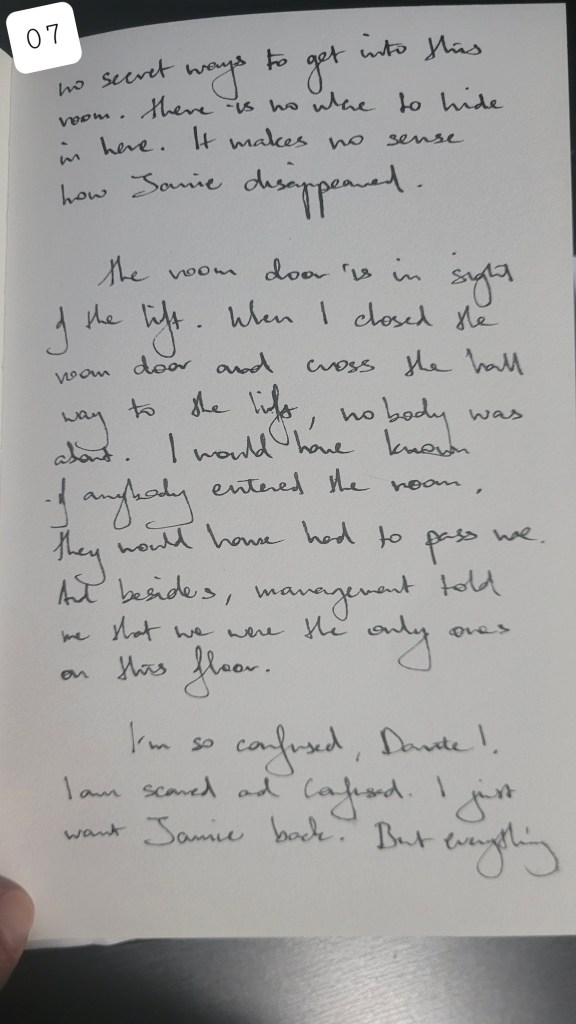 07
no secret ways to get into this
room. There is no where to hide
in here. It makes no sense
how Jamie disappeared.
The room door is in sight
of the lift. When I closed the
room door and cross the hall
way to the lift, nobody was
about. I would have known
if anybody entered the room,
they would have had to pass me.
And besides, management told
me that we were the only ones
on this floor.
I'm so confused, Dante!.
I am scared ad confused. I just
want Jamie back. But everything